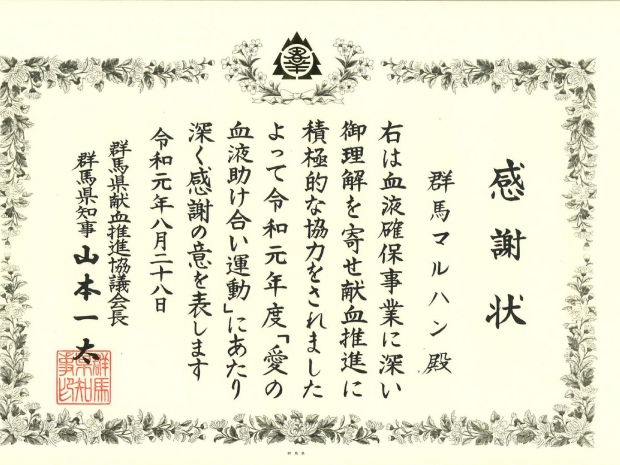 感謝状
群馬マルハン殿
右は血液確保事業に深い
御理解を寄せ献血推進に
積極的な協力をされました
よって令和元年度「愛の
血液助け合い運動」にあたり
深く感謝の意を表します
令和元年八月二十八日
群馬県献血推進協議会長
群馬県知事 山本一太
群馬
県知
事印